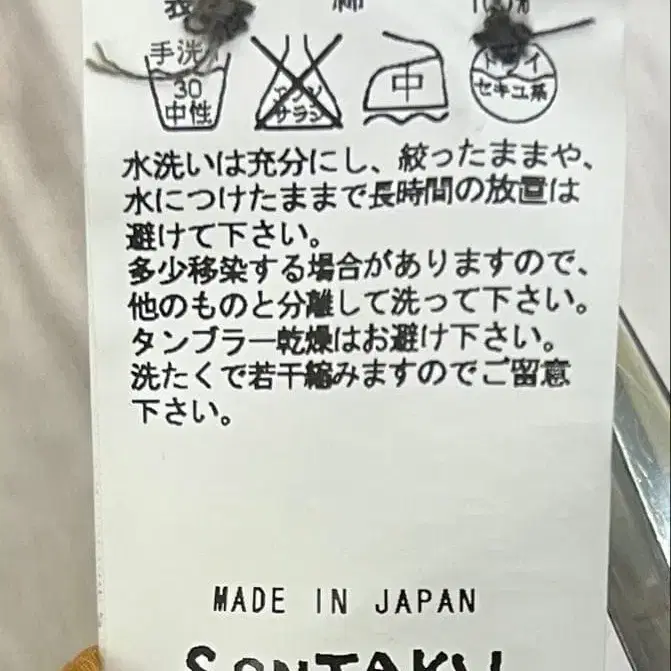 綿
手洗イ
30
中性
エンソ
サラシ
中
ドライ
セキユ系
水洗いは充分にし、絞ったままや、
水につけたままで長時間の放置は
避けて下さい。
多少移染する場合がありますので、
他のものと分離して洗って下さい。
タンブラー乾燥はお避け下さい。
洗たくで若干縮みますのでご留意
下さい。
MADE IN JAPAN
SONTAKU